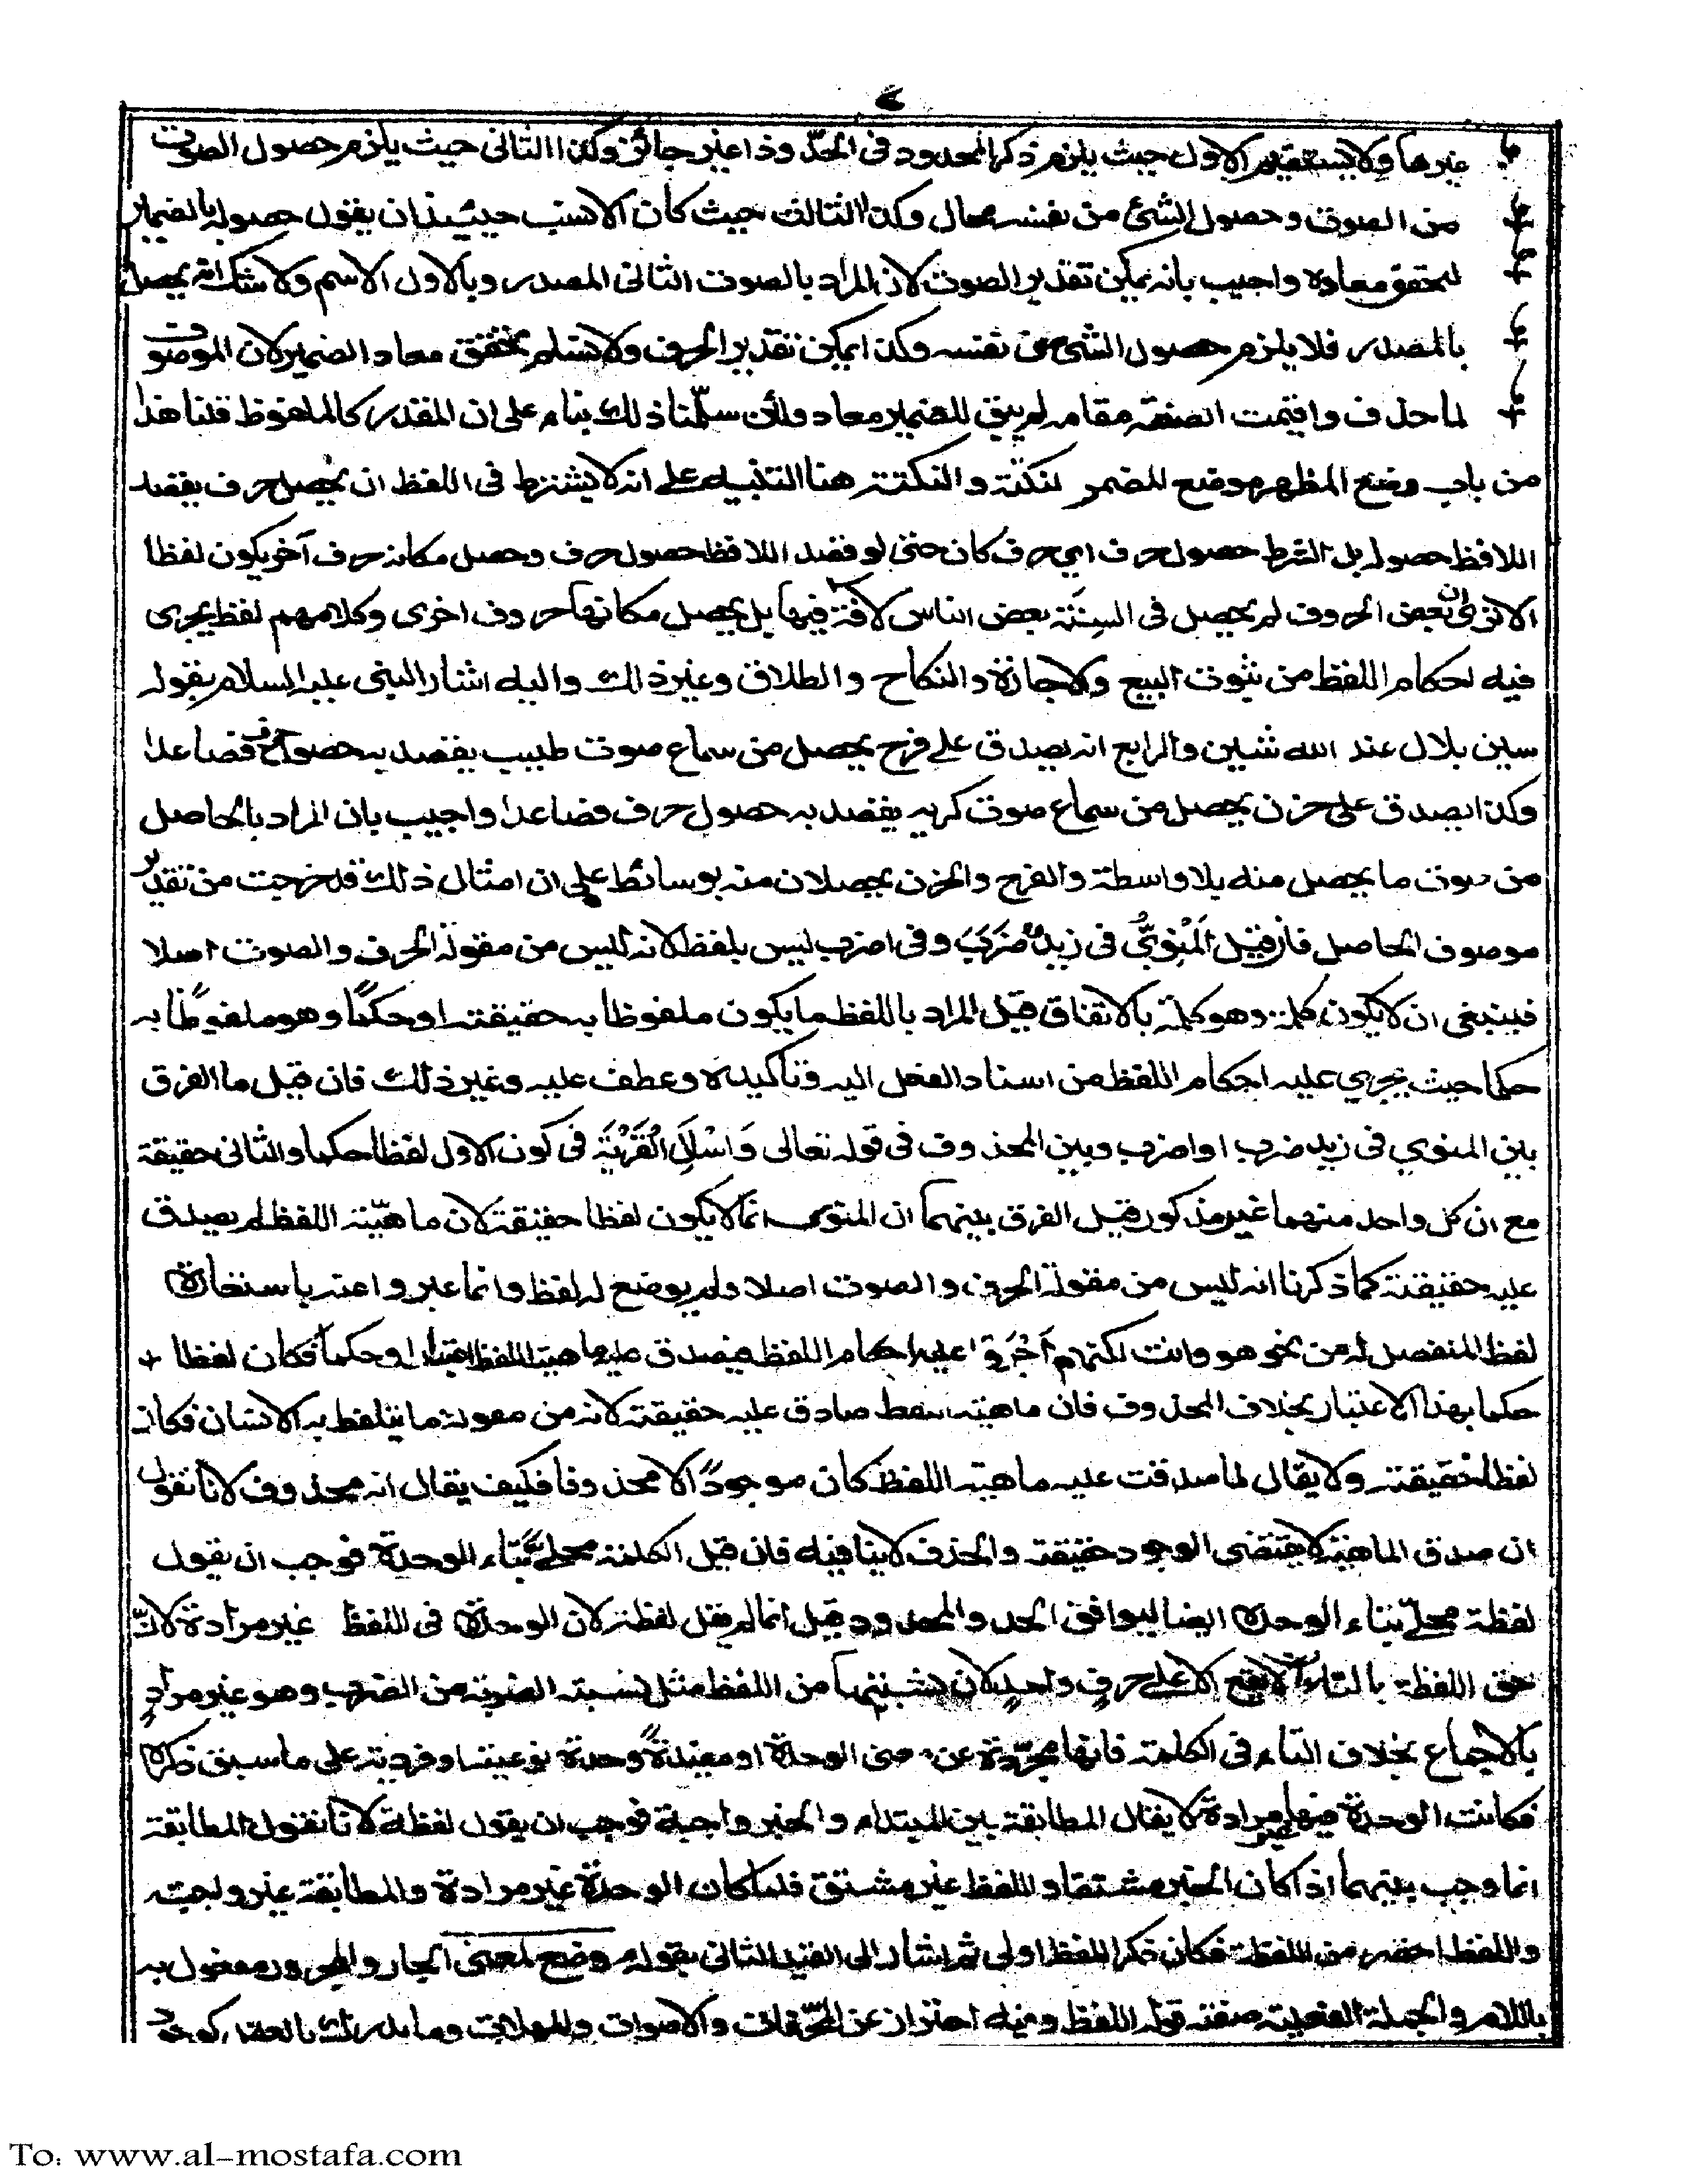 غيرها ولا يستقيم الاول حيث يلزم ذكر المحدود في الحدّ وذا غير جائز وكذا الثاني حيث يلزم حصول الصوت
من الصوت وحصول الشئ من نفسه محال وكذا الثالث حيث كان الانسب حينئذ ان يقول حصوله بالضمير
لتحقق معاده واجيب بانه يمكن تقدير الصوت لان المراد بالصوت الثاني المصدر وبالاول الاسم ولا شك انه يحصل
بالمصدر فلا يلزم حصول الشئ من نفسه وكذا يمكن تقدير الحرف ولا نسلم تحقق معاد الضمير لان الموصوف
لما حذف واقيمت الصفة مقامه لم يبق للضمير معاد ولئن سلّمنا ذلك بناء على ان المقدر كالملفوظ قلنا هذا
من باب وضع المظهر موضع المضمر لنكتة والنكتة هنا التنبيه على انه لا يشترط في اللفظ ان يحصل حرف يقصد
اللافظ حصوله بل الشرط حصول حرف اي حرف كان حتى لو قصد اللافظ حصول حرف وحصل مكانه حرف آخر يكون لفظا
الا ترى ان بعض الحروف لم يحصل في السنة بعض الناس لآفة فيها بل يحصل مكانها حروف اخرى وكلامهم لفظ يجرى
فيه احكام اللفظ من ثبوت البيع والاجارة والنكاح والطلاق وغير ذلك واليه اشار النبي عليه السلام بقوله
سين بلال عند الله شين والرابع انه يصدق على فرح يحصل من سماع صوت طيب يقصد به حصول حرف فصاعدا
وكذا يصدق على حزن يحصل من سماع صوت كريه يقصد به حصول حرف فصاعدا واجيب بان المراد بالحاصل
من صوت ما يحصل منه بلا واسطة والفرح والحزن يحصلان منه بوسائط على ان امثال ذلك قد خرجت من تقدير
موصوف الحاصل فان قيل المَنْوِيُّ في زيد ضَرَبَ وفي اضرب ليس بلفظ لانه ليس من مقولة الحرف والصوت اصلا
فينبغي ان لا يكون كلمة وهو كلمة بالاتفاق قيل المراد باللفظ ما يكون ملفوظا به حقيقة او حكمًا وهو ملفوظًا به
حكما حيث يجري عليه احكام اللفظ من اسناد الفعل اليه وتأكيده وعطف عليه وغير ذلك فان قيل ما الفرق
بين المنوي في زيد ضرب او اضرب وبين المحذوف في قوله تعالى وَاسْئَلِ الْقَرْيَةَ في كون الاول لفظا حكما والثاني حقيقة
مع ان كل واحد منهما غير مذكور قيل الفرق بينهما ان المنوي انما لا يكون لفظا حقيقة لان ماهيّة اللفظ لم يصدق
عليه حقيقة كما ذكرنا انه ليس من مقولة الحرف والصوت اصلا ولم يوضع له لفظ وانما عبروا عنه باستعارة
لفظ المنفصل له من نحو هو وانت لكنهم أَجْرَوْا عليه احكام اللفظ فيصدق عليه ماهية اللفظ حكمًا فكان لفظا
حكما بهذا الاعتبار بخلاف المحذوف فان ماهية لفظ صادق عليه حقيقة لانه من مقولة ما يتلفظ به الانسان فكان
لفظا حقيقة ولا يقال لما صدقت عليه ماهية اللفظ كان موجودًا لا محذوفا فكيف يقال انه محذوف لانا نقول
ان صدق الماهية لا يقتضى الوجود حقيقة والحذف لا ينافيه فان قيل الكلمة محلى بتاء الوحدة فوجب ان يقول
لفظة محلّى بتاء الوحدة ايضا ليوافق الحد والمحدود قيل انما لم يقل لفظة لان الوحدة في اللفظ غير مرادة لانّ
حق اللفظة بالتاء ان لا يقع الا على حرف واحد لان نسبتها من اللفظ مثل نسبة الضربة من الضرب وهو غير مراد
بالاجماع بخلاف التاء في الكلمة فانها مجرّدة عن معنى الوحدة او مفيدةً وحدة نوعية او فردية على ما سبق ذكره
فكانت الوحدة فيها غير مرادة لا يقال المطابقة بين المبتداء والخبر واجبة فوجب ان يقول لفظة لانا نقول المطابقة
انما وجب بينهما اذا كان الخبر مشتقا واللفظ غير مشتق فلما كان الوحدة غير مرادة والمطابقة غير واجبة
واللفظ اخصر من اللفظة فكان ذكر اللفظ اولى ثم اشار الى القيد الثاني بقوله وضع لمعنى الجار والمجرور مفعول به
باللام والجملة الفعلية صفة قوله اللفظ وفيه احتراز عن المحرّفات والاصوات والمهملات وما يدرك بالعقل كوجود
To: www.al-mostafa.com